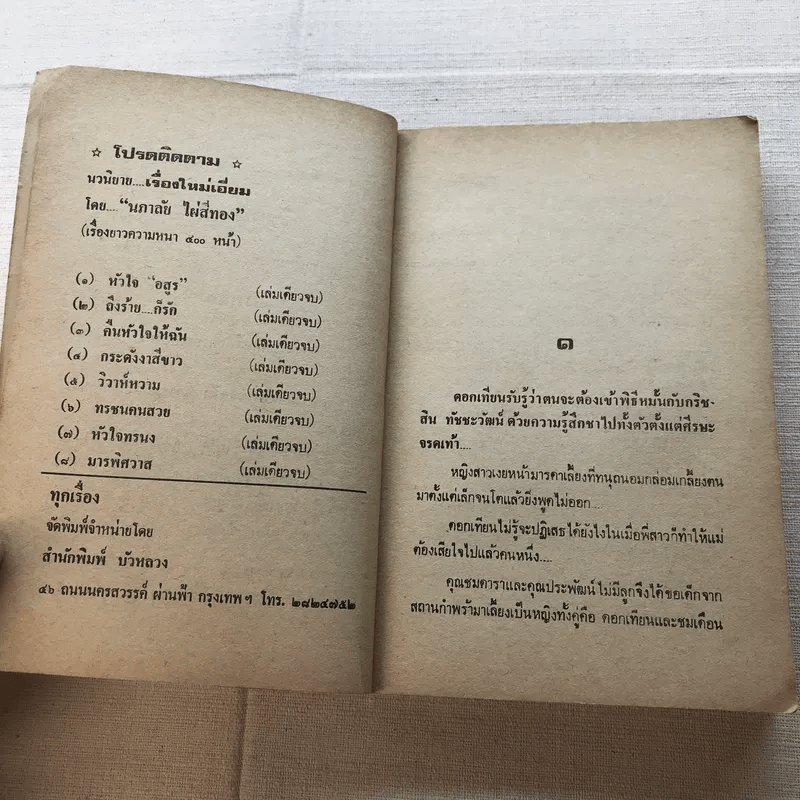 ☆ โปรดติดตาม ☆
นวนิยาย....เรื่องใหม่เอี่ยม
โดย...."นภาลัย ไผ่สีทอง"
(เรื่องยาวความหนา ๔๐๐ หน้า)
(๑) หัวใจ "อสูร" (เล่มเดียวจบ)
(๒) ถึงร้าย....ก็รัก (เล่มเดียวจบ)
(๓) คืนหัวใจให้ฉัน (เล่มเดียวจบ)
(๔) กระดังงาสีขาว (เล่มเดียวจบ)
(๕) วิวาห์หวาม (เล่มเดียวจบ)
(๖) ทรชนคนสวย (เล่มเดียวจบ)
(๗) หัวใจทรนง (เล่มเดียวจบ)
(๘) มารพิศวาส (เล่มเดียวจบ)
ทุกเรื่อง
จัดพิมพ์จำหน่ายโดย
สำนักพิมพ์ บัวหลวง
๔๖ ถนนนครสวรรค์ ผ่านฟ้า กรุงเทพฯ โทร. ๒๘๒๔๗๕๒
๑
ดอกเทียนรับรู้ว่าตนจะต้องเข้าพิธีหมั้นกับกริช-
สิน ทัชชะวัฒน์ ด้วยความรู้สึกชาไปทั้งตัวตั้งแต่ศีรษะ
จรดเท้า....
หญิงสาวเงยหน้ามารดาเลี้ยงที่ทนุถนอมกล่อมเกลี้ยงตน
มาตั้งแต่เล็กจนโตแล้วยิ่งพูดไม่ออก....
ดอกเทียนไม่รู้จะปฏิเสธได้ยังไงในเมื่อพี่สาวก็ทำให้แม่
ต้องเสียใจไปแล้วคนหนึ่ง....
คุณชมดาราและคุณประพัฒน์ ไม่มีลูกจึงได้ขอเด็กจาก
สถานกำพร้ามาเลี้ยงเป็นหญิงทั้งคู่คือ ดอกเทียนและชมเดือน